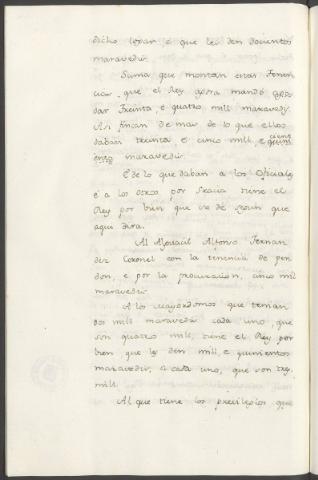 dicho logar é que le den docientos
maravedis.
Suma que montan estas Tenen
cias que el Rey agora mandó
dar Treinta, é quatro mill maravedis.
Asi fincan de mas de lo que ellos
daban treinta, e cinco mill, e
cient maravedis.
E de lo que daban a los Oficiales
é a los otros por gracia tiene el
Rey por bien que se dé segun que
aqui dira.
Al Alguacil Alfonso Fernan
dez Coronel con la tenencia de pen
don, e por la procuracion, cinco mil
maravedis.
A los mayordomos que tenian
dos mill maravedis cada uno, que
son quatro mill, tiene el Rey por
bien que les den mill, e quinientos
maravedis, á cada uno, que son tres
mill.
Al que tiene los previlegios que